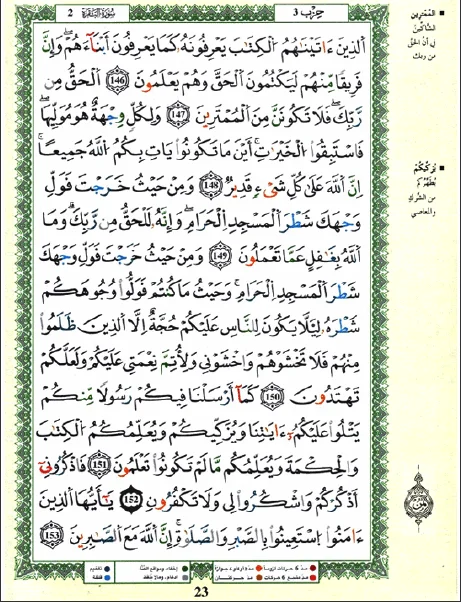 حِزْب 3
سُورَةُ البَقَرَة 2
الذِينَ ءَاتَيْنَٰهُمُ الْكِتَٰبَ يَعْرِفُونَهُۥ كَمَا يَعْرِفُونَ أَبْنَآءَهُمْ وَإِنَّ
فَرِيقًا مِّنْهُمْ لَيَكْتُمُونَ الْحَقَّ وَهُمْ يَعْلَمُونَ 146 الْحَقُّ مِن
رَّبِّكَ فَلَا تَكُونَنَّ مِنَ الْمُمْتَرِينَ 147 وَلِكُلٍّ وِجْهَةٌ هُوَ مُوَلِّيهَا
فَاسْتَبِقُوا الْخَيْرَٰتِ أَيْنَ مَا تَكُونُوا يَاتِ بِكُمُ اللَّهُ جَمِيعًا
إِنَّ اللَّهَ عَلَىٰ كُلِّ شَيْءٍ قَدِيرٌ 148 وَمِنْ حَيْثُ خَرَجْتَ فَوَلِّ
وَجْهَكَ شَطْرَ الْمَسْجِدِ الْحَرَامِ وَإِنَّهُۥ لَلْحَقُّ مِن رَّبِّكَ وَمَا
اللَّهُ بِغَٰفِلٍ عَمَّا تَعْمَلُونَ 149 وَمِنْ حَيْثُ خَرَجْتَ فَوَلِّ وَجْهَكَ
شَطْرَ الْمَسْجِدِ الْحَرَامِ وَحَيْثُ مَا كُنتُمْ فَوَلُّوا وُجُوهَكُمْ
شَطْرَهُۥ لِيَلَّا يَكُونَ لِلنَّاسِ عَلَيْكُمْ حُجَّةٌ إِلَّا الَّذِينَ ظَلَمُوا
مِنْهُمْ فَلَا تَخْشَوْهُمْ وَاخْشَوْنِي وَلِأُتِمَّ نِعْمَتِي عَلَيْكُمْ وَلَعَلَّكُمْ
تَهْتَدُونَ 150 كَمَا أَرْسَلْنَا فِيكُمْ رَسُولًا مِّنكُمْ
يَتْلُوا عَلَيْكُمُۥ ءَايَٰتِنَا وَيُزَكِّيكُمْ وَيُعَلِّمُكُمُ الْكِتَٰبَ
وَالْحِكْمَةَ وَيُعَلِّمُكُم مَّا لَمْ تَكُونُوا تَعْلَمُونَ 151 فَاذْكُرُونِي
أَذْكُرْكُمْ وَاشْكُرُوا لِي وَلَا تَكْفُرُونِ 152 يَٰأَيُّهَا الَّذِينَ
ءَامَنُوا اسْتَعِينُوا بِالصَّبْرِ وَالصَّلَوٰةِ إِنَّ اللَّهَ مَعَ الصَّٰبِرِينَ 153
المُمْتَرِينَ
الشاكّين
في أن الحق
من ربك
يُزَكِّيكُمْ
يُطَهِّرُكُم
من الشرك
والمعاصي
ثمن
23